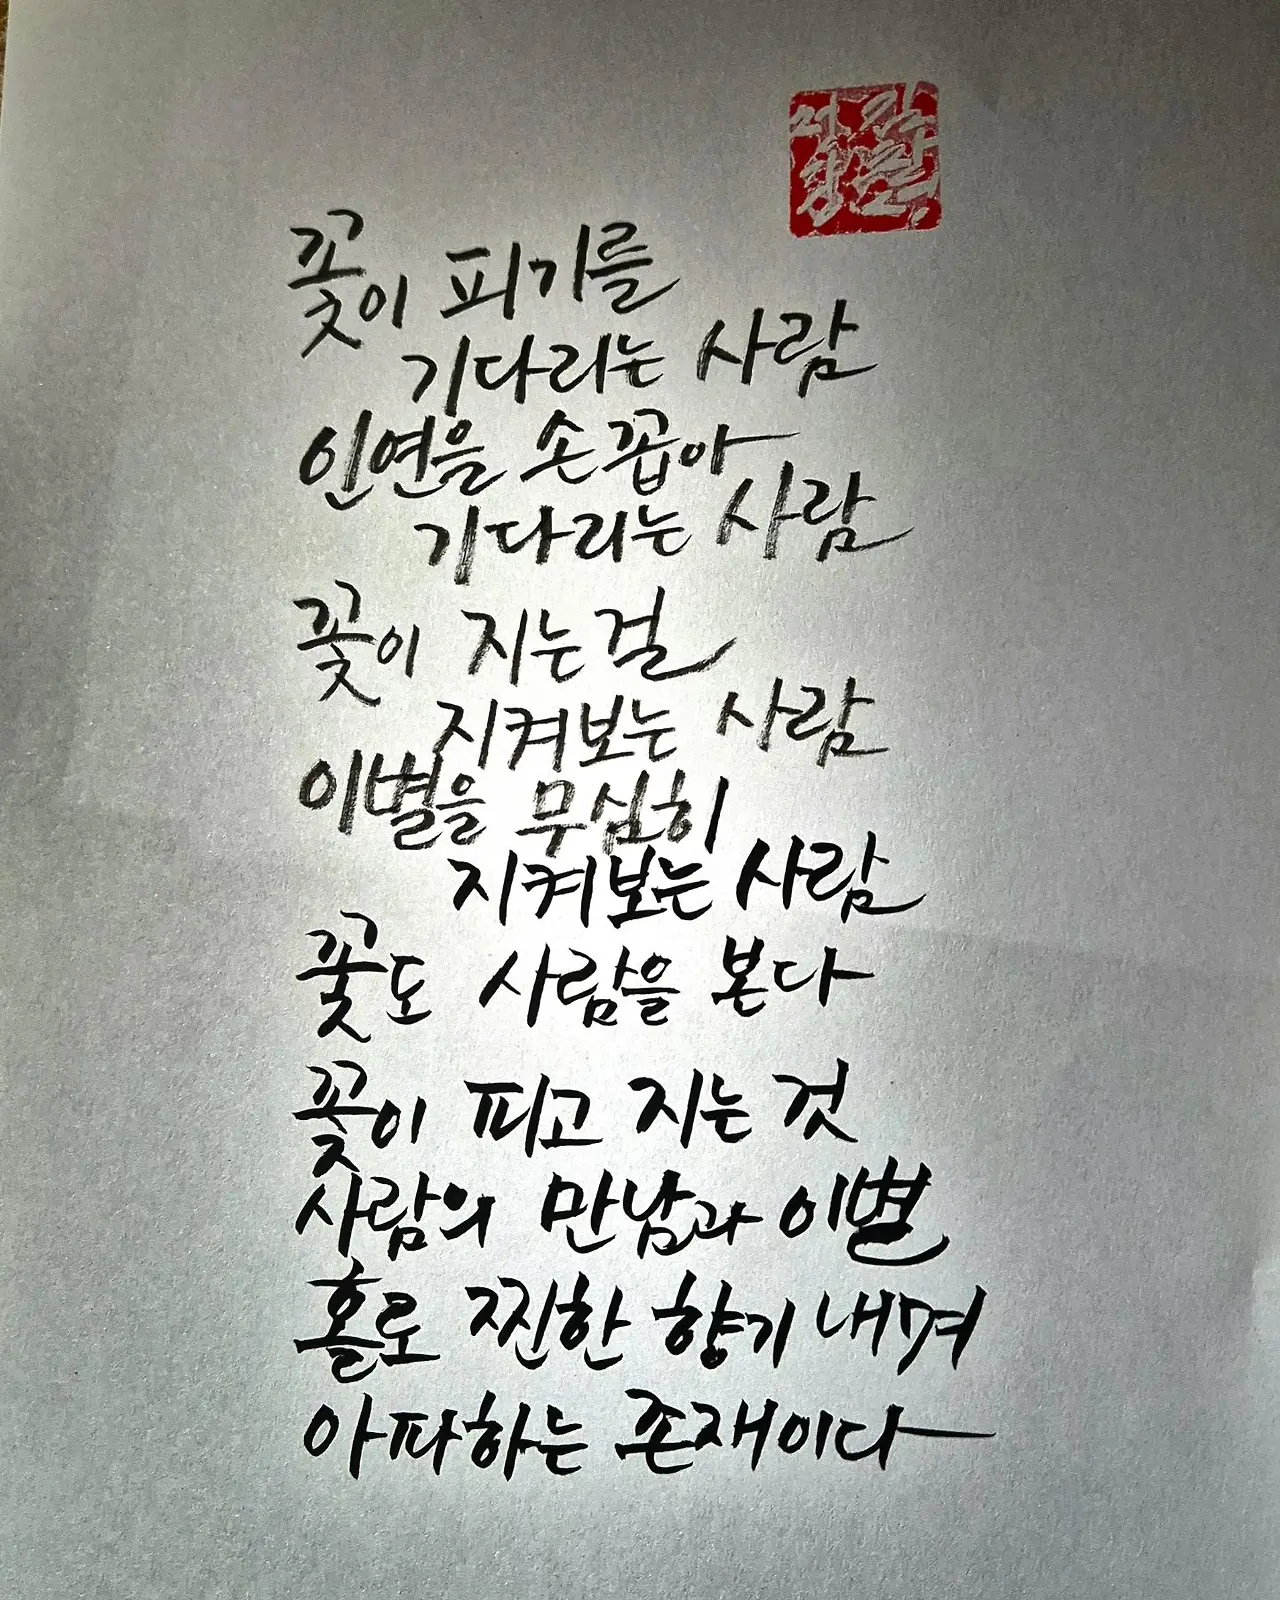 꽃이 피기를
기다리는 사람
인연을 손꼽아
기다리는 사람
꽃이 지는걸
지켜보는 사람
이별을 무심히
지켜보는 사람
꽃도 사람을 본다
꽃이 피고 지는 것
사람의 만남과 이별
홀로 찐한 향기 내며
아파하는 존재이다